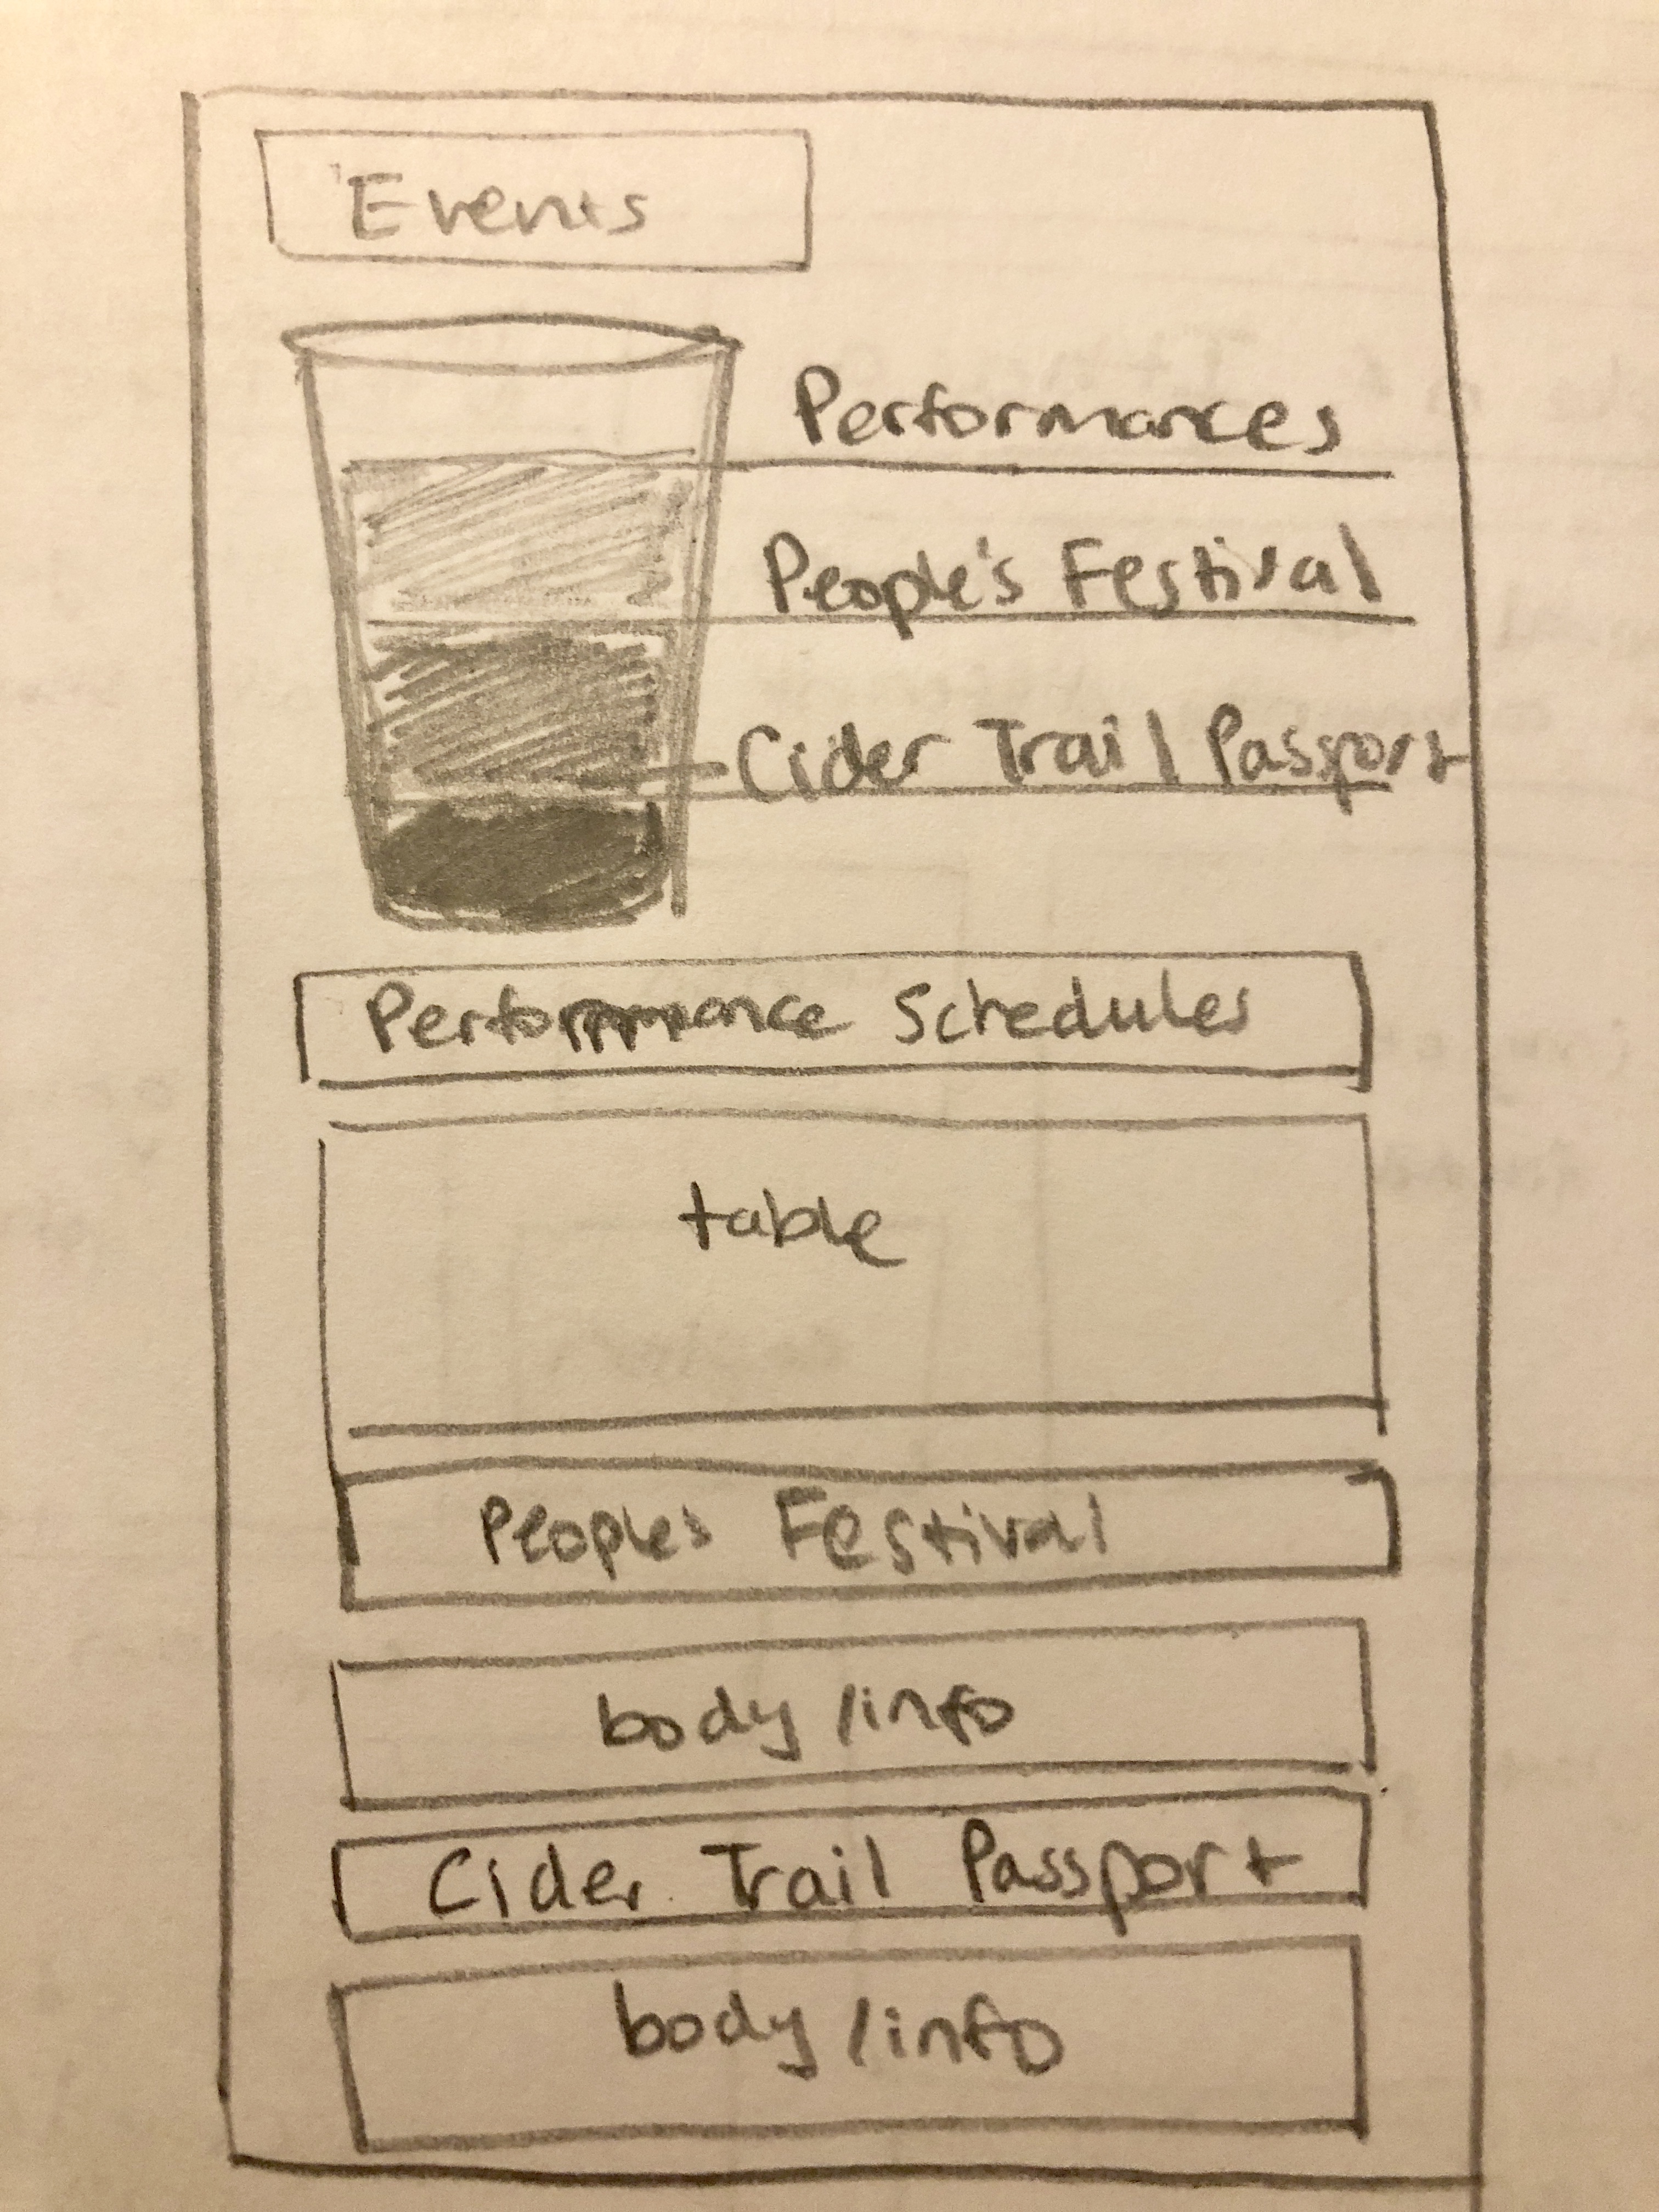 Events
Performances
People's Festival
Cider Trail Passport
Performance Schedules
table
Peoples Festival
body/info
Cider Trail Passport
body/info